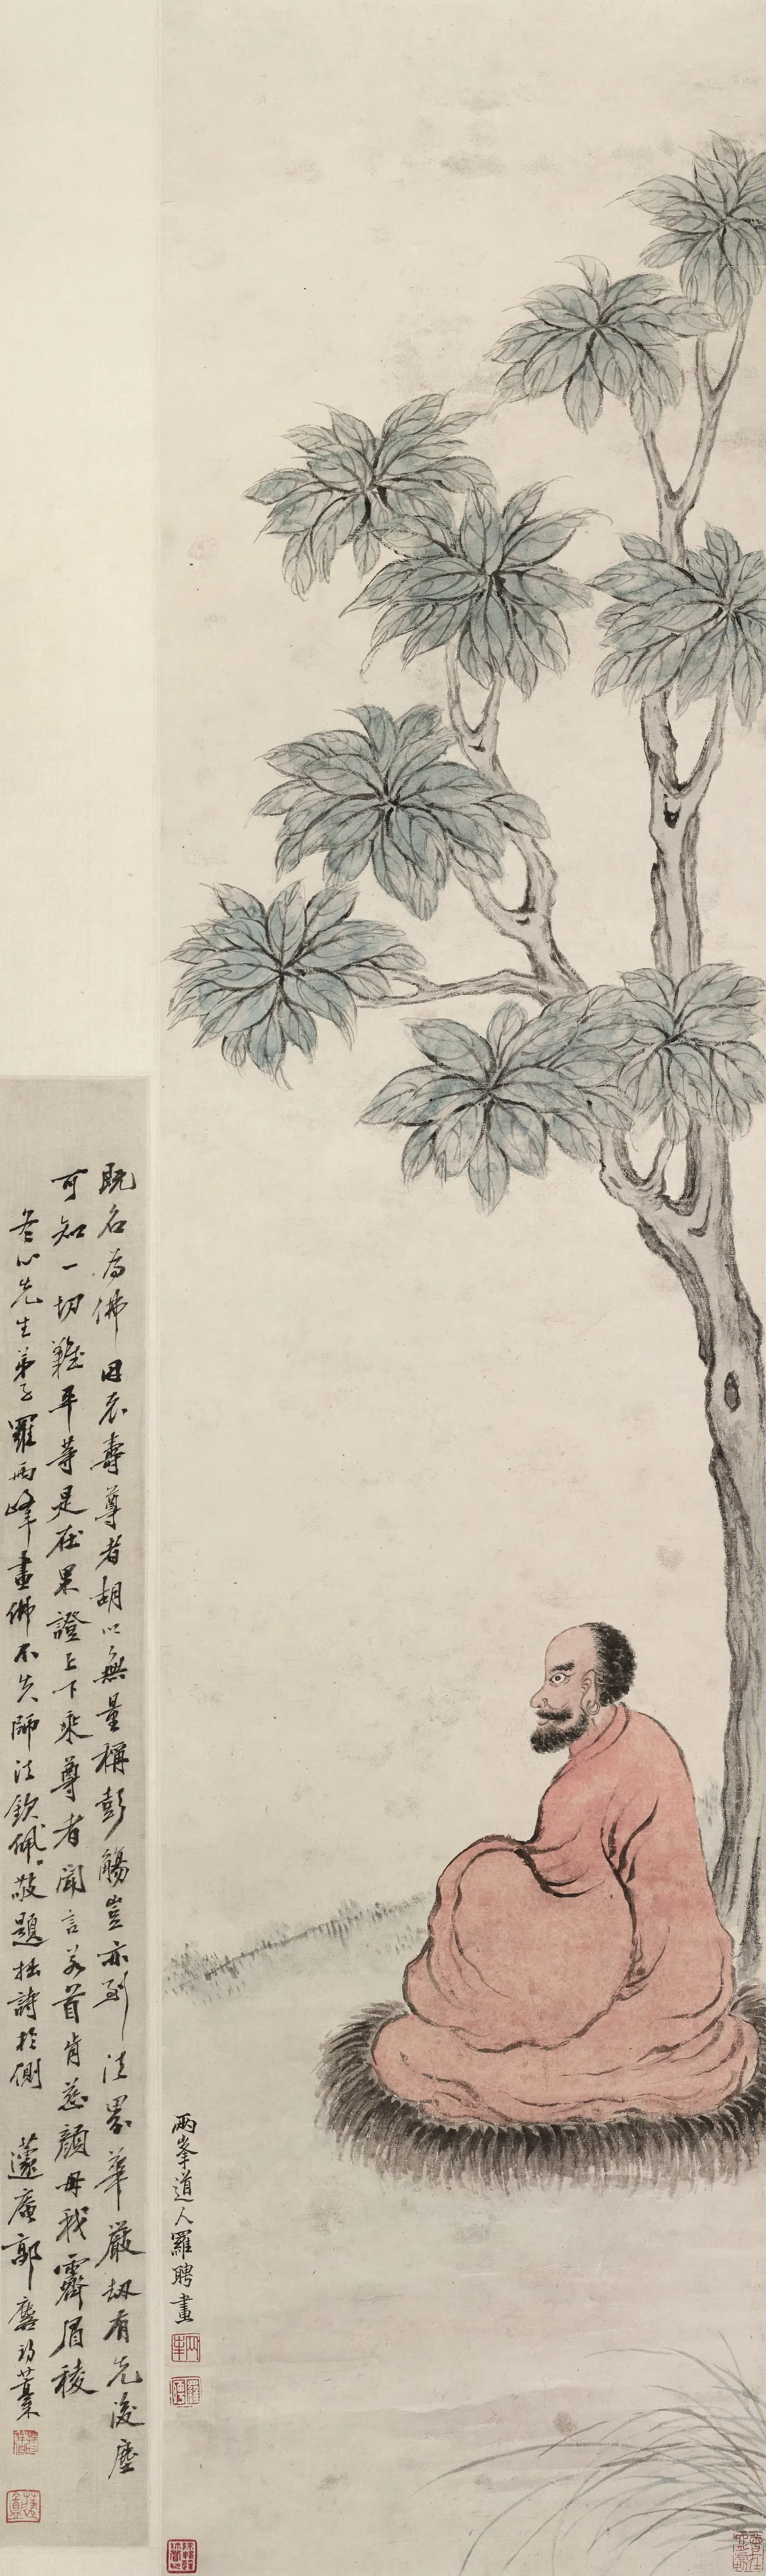 既名為佛因衣壽尊者胡以無量稱彭觴豈亦到法界華嚴劫有先後塵
可知一切難平等是在果證上下乘尊者聞言若首肯慈顏毋我霽眉稜
冬心先生弟子羅兩峰畫佛不失師法欽佩敬題拙詩於側 蘧庵郭麐初藁
兩峯道人羅聘畫